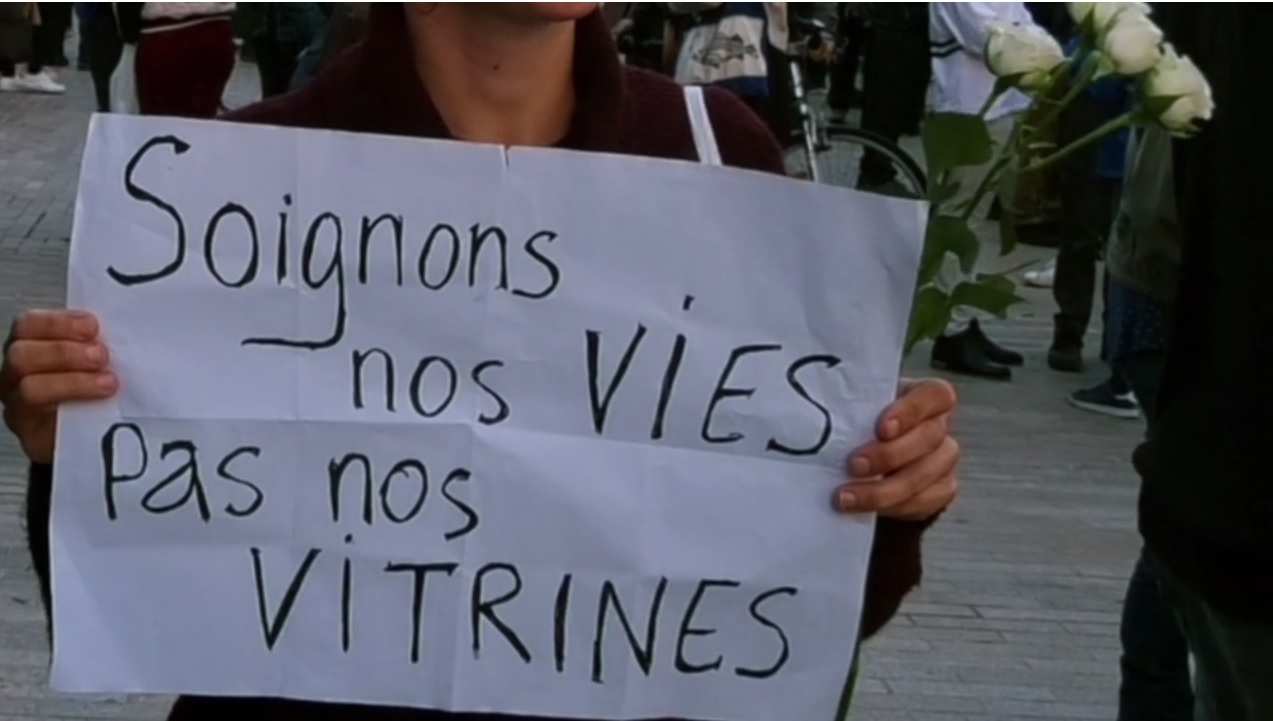 Soignons
nos ViES
Pas nos
ViTRINES